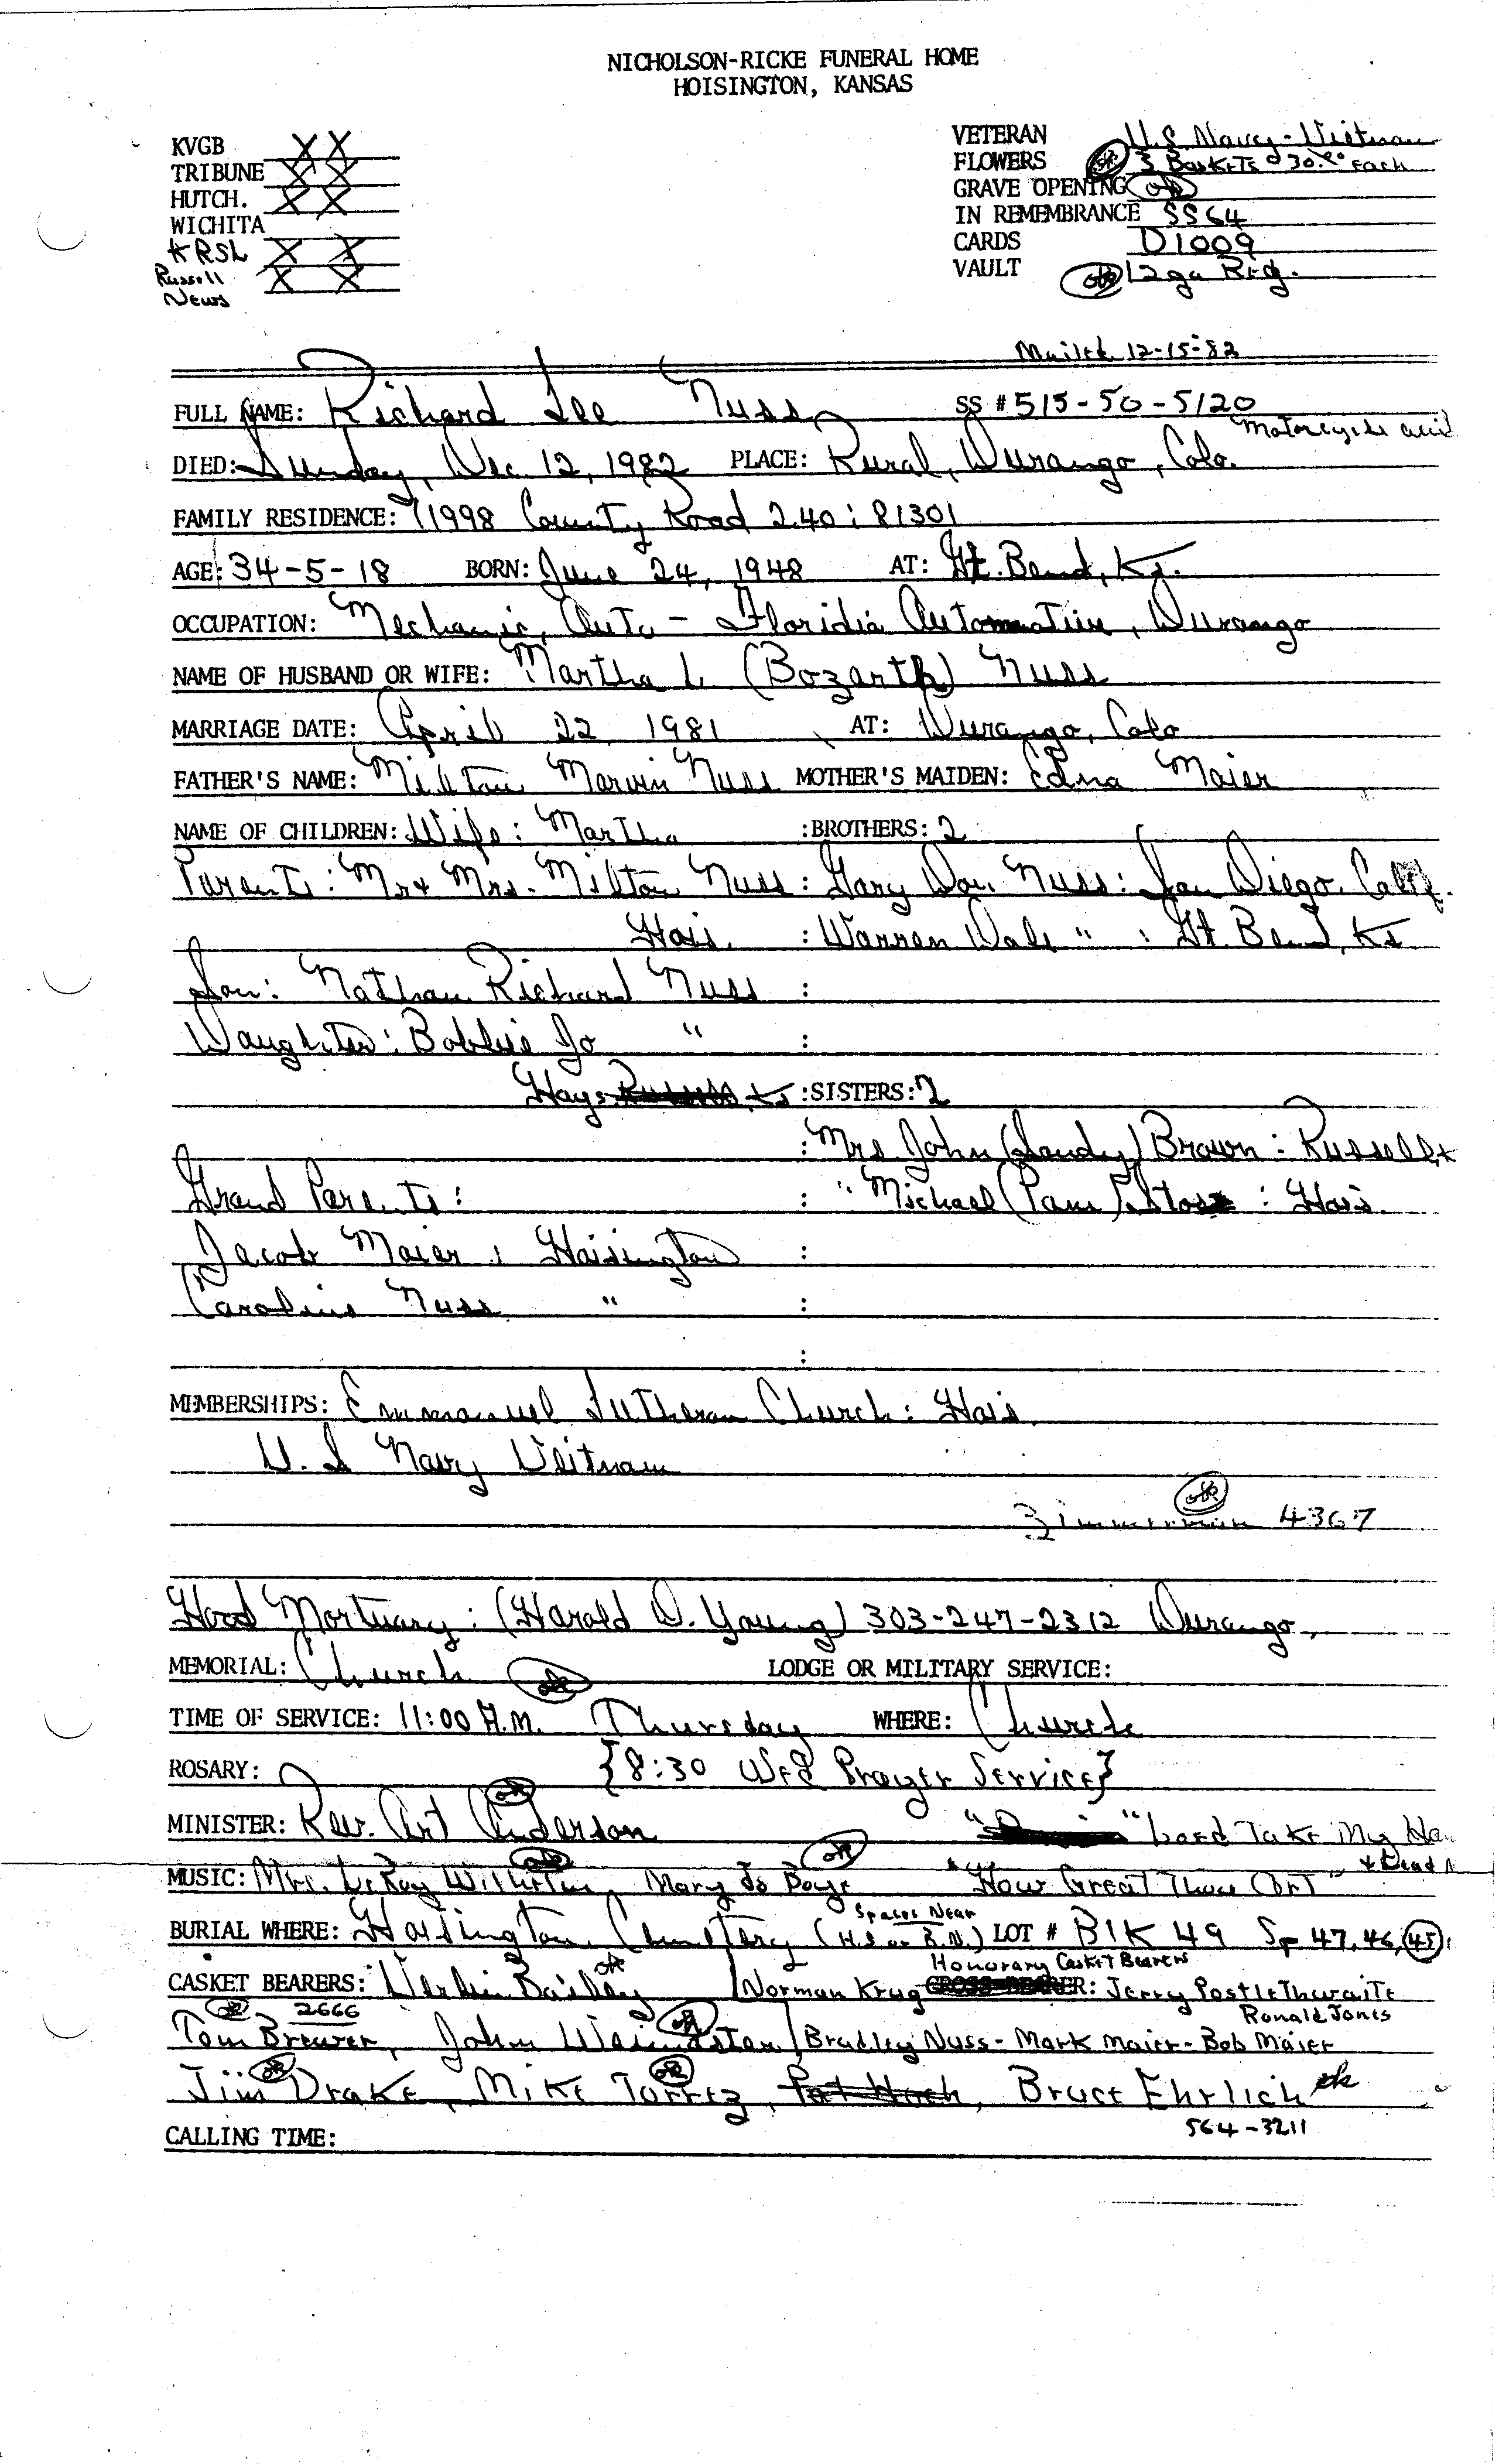 NICHOLSON-RICKE FUNERAL HOME
HOISINGTON, KANSAS
KVGB X X
TRIBUNE X X
HUTCH. X X
WICHITA
KRSL X X
Russell X X
News
VETERAN U.S. Navy - Vietnam
FLOWERS ok 3 Baskets @ 30.00 Each
GRAVE OPENING ok
IN REMEMBRANCE SS64
CARDS D1009
VAULT ok 12ga Reg.
Mailed 12-15-82
FULL NAME: Richard Lee Nuss SS # 515-50-5120
Motorcycle acci
DIED: Sunday, Dec. 12, 1982 PLACE: Rural, Durango, Colo.
FAMILY RESIDENCE: 11998 County Road 240: 81301
AGE: 34-5-18 BORN: June 24, 1948 AT: Gt. Bend, Ks.
OCCUPATION: Mechanic, Auto - Floridia Automative, Durango
NAME OF HUSBAND OR WIFE: Martha L (Bozarth) Nuss
MARRIAGE DATE: April 22, 1981 AT: Durango, Colo
FATHER'S NAME: Milton Marvin Nuss MOTHER'S MAIDEN: Edna Maier
NAME OF CHILDREN: Wife: Martha :BROTHERS: 2
Parents: Mr + Mrs. Milton Nuss : Gary Don Nuss: San Diego, Calif.
Hois. : Warren Dale " : Gt. Bend, Ks
Son: Nathan Richard Nuss :
Daughter: Bobbie Jo " :
Hays Ks :SISTERS: 2
: Mrs John (Sandy) Brown : Russell, K
Grand Parents: : " Michael (Pam) : Hois.
Jacob Maier : Hoisington :
Caroline Nuss " :
:
MEMBERSHIPS: Emmanuel Lutheran Church: Hois.
U.S Navy Veitnam
ok
Zimmerman 4367
Hood Mortuary: (Harold D. Young) 303-247-2312 Durango,
MEMORIAL: Church ok LODGE OR MILITARY SERVICE:
TIME OF SERVICE: 11:00 A.M. Thursday WHERE: Church
ROSARY: {8:30 Wed Prayer Service}
MINISTER: Rev. Art Anderson ok " " Lord Take My Han
+ Lead
MUSIC: Mrs. LeRoy Wilhelm ok, Mary Jo Boye ok "How Great Thou Art"
Spaces Near
BURIAL WHERE: Hoisington Cemetery LOT # Blk 49 Sp 47, 46, 45
Honorary Casket Bearers
CASKET BEARERS: Verlin Bailey ok Norman Krug CROSS BEARER: Jerry Postlethwaite
Ronald Jones
ok 2666
Tom Brewer, John ok Bradley Nuss - Mark Maier - Bob Maier
Jim Drake ok, Mike Torrez ok, Pat Hoch, Bruce Ehrlich ok
564-3211
CALLING TIME: